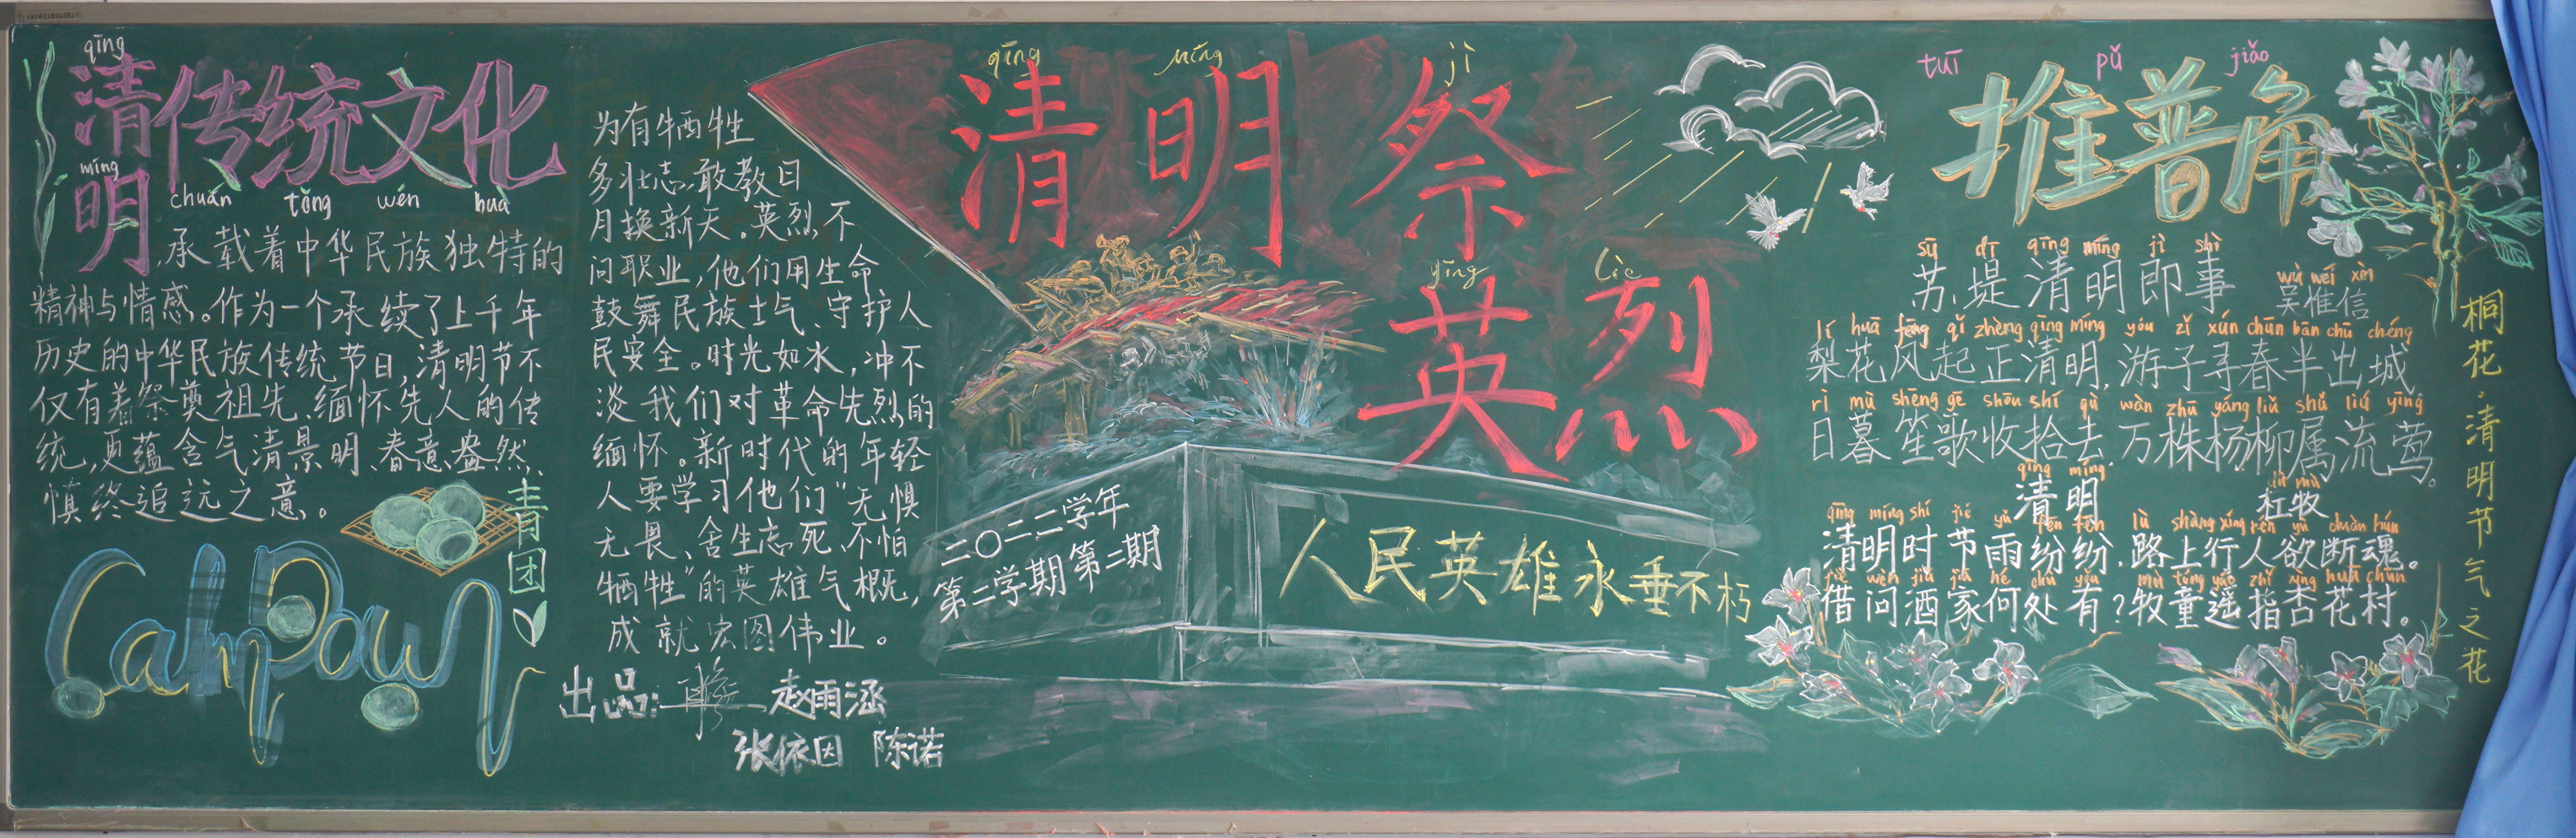 qīng
清传统文化
míng
明
chuán tǒng wén huà
,承载着中华民族独特的
精神与情感。作为一个承续了上千年
历史的中华民族传统节日,清明节不
仅有着祭奠祖先、缅怀先人的传
统,更蕴含气清景明、春意盎然、
慎终追远之意。
青团
为有牺牲
多壮志,敢教日
月换新天。英烈不
问职业,他们用生命
鼓舞民族士气、守护人
民安全。时光如水,冲不
淡我们对革命先烈的
缅怀。新时代的年轻
人要学习他们“无惧
无畏、舍生忘死、不怕
牺牲”的英雄气概,
成就宏图伟业。
出品: 赵雨涵
张依因 陈诺
qīng míng jì
清明祭
yīng liè
英烈
二〇二二学年
第二学期第二期
人民英雄永垂不朽
tuī pǔ jiǎo
推普角
sū dī qīng míng jì shì
苏堤清明即事
wú wéi xìn
吴惟信
lí huā fēng qǐ zhèng qīng míng yóu zǐ xún chūn bàn chū chéng
梨花风起正清明,游子寻春半出城
rì mù shēng gē shōu shí qù wàn zhū yáng liǔ shǔ liú yīng
日暮笙歌收拾去 万株杨柳属流莺。
qīng míng
清明
dù mù
杜牧
qīng míng shí jié yǔ fēn fēn lù shàng xíng rén yù duàn hún
清明时节雨纷纷,路上行人欲断魂。
jiè wèn jiǔ jiā hé chù yǒu mù tóng yáo zhǐ xìng huā cūn
借问酒家何处有?牧童遥指杏花村。
桐花,清明节气之花